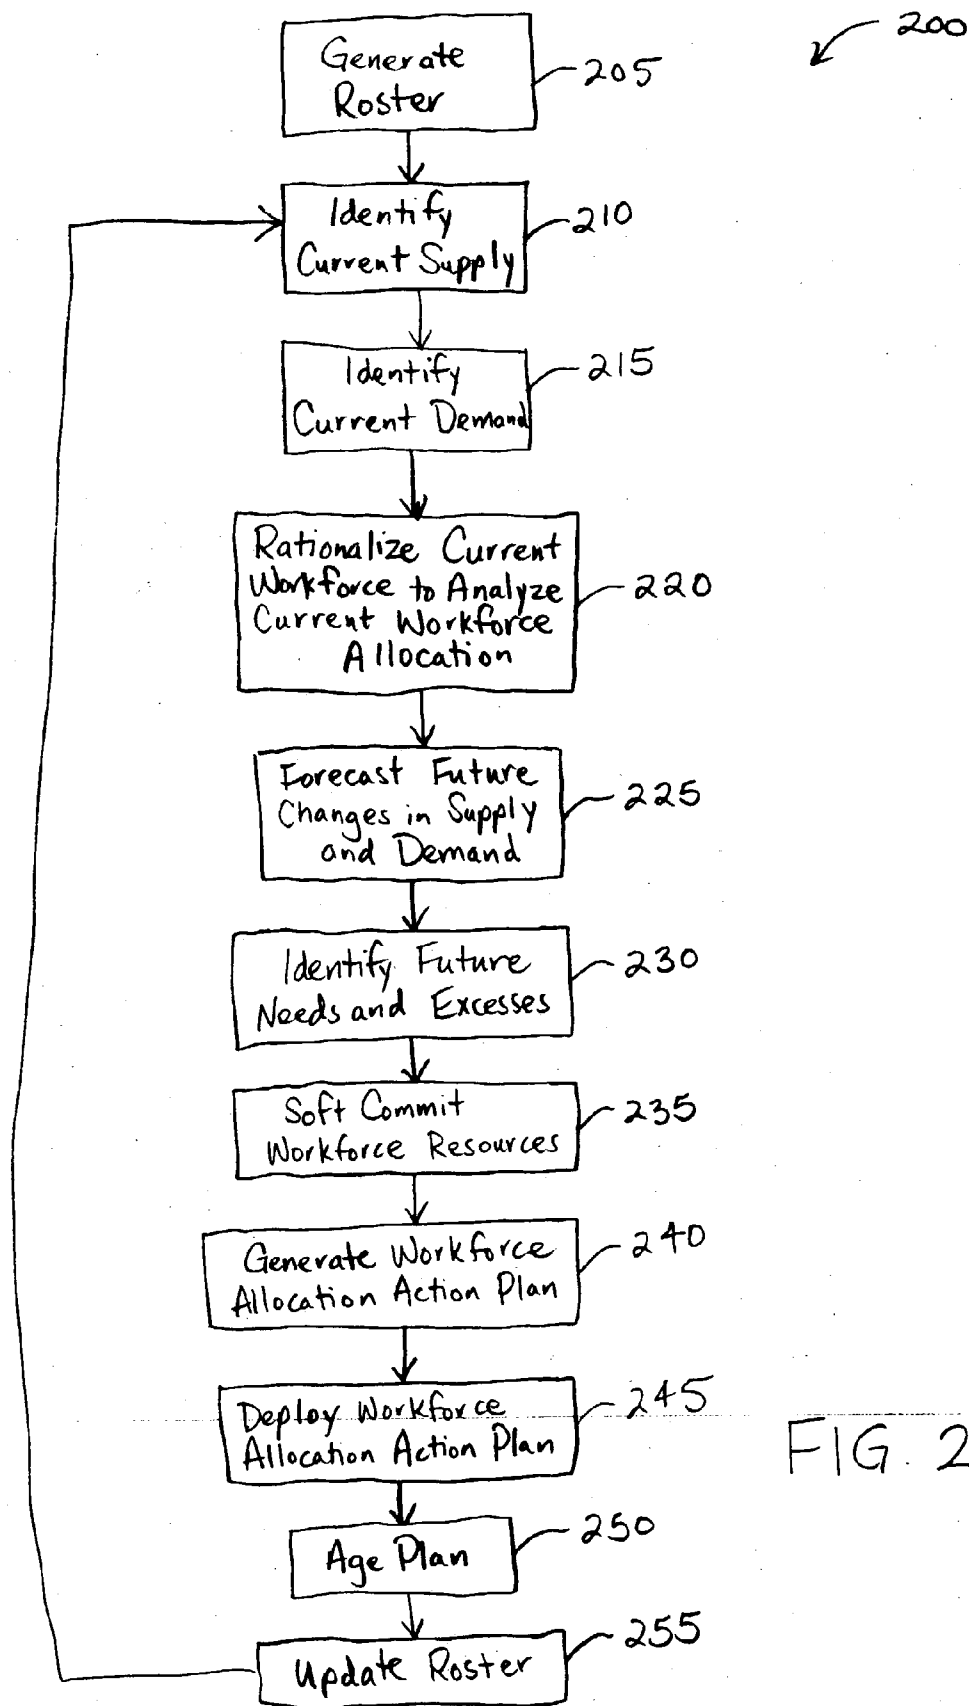 200
Generate
Roster
205
Identify
Current Supply
210
Identify
Current Demand
215
Rationalize Current
Workforce to Analyze
Current Workforce
Allocation
220
Forecast Future
Changes in Supply
and Demand
225
Identify Future
Needs and Excesses
230
Soft Commit
Workforce Resources
235
Generate Workforce
Allocation Action Plan
240
Deploy Workforce
Allocation Action Plan
245
FIG. 2
Age Plan
250
Update Roster
255